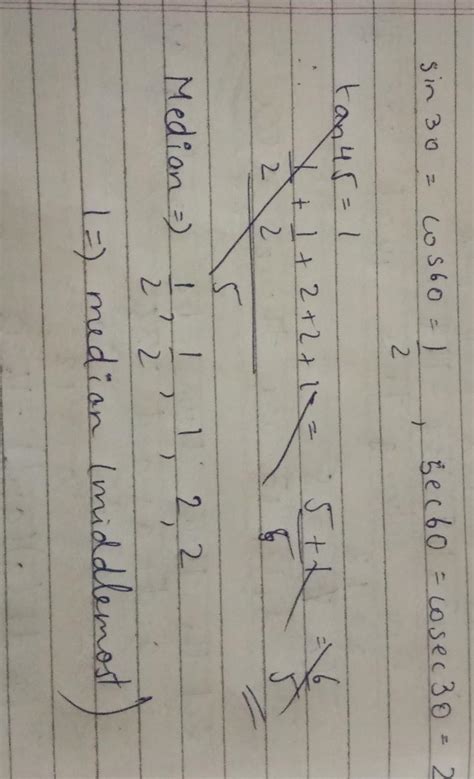 sin 30 = cos60 = 1/2 , sec60 = cosec30 = 2
tan45 = 1
∴ 1/2 + 1/2 + 2 + 2 + 1 = 5+1 = 6
5 5
Median => 1/2 , 1/2 , 1 , 2 , 2
1 => median (middlemost)